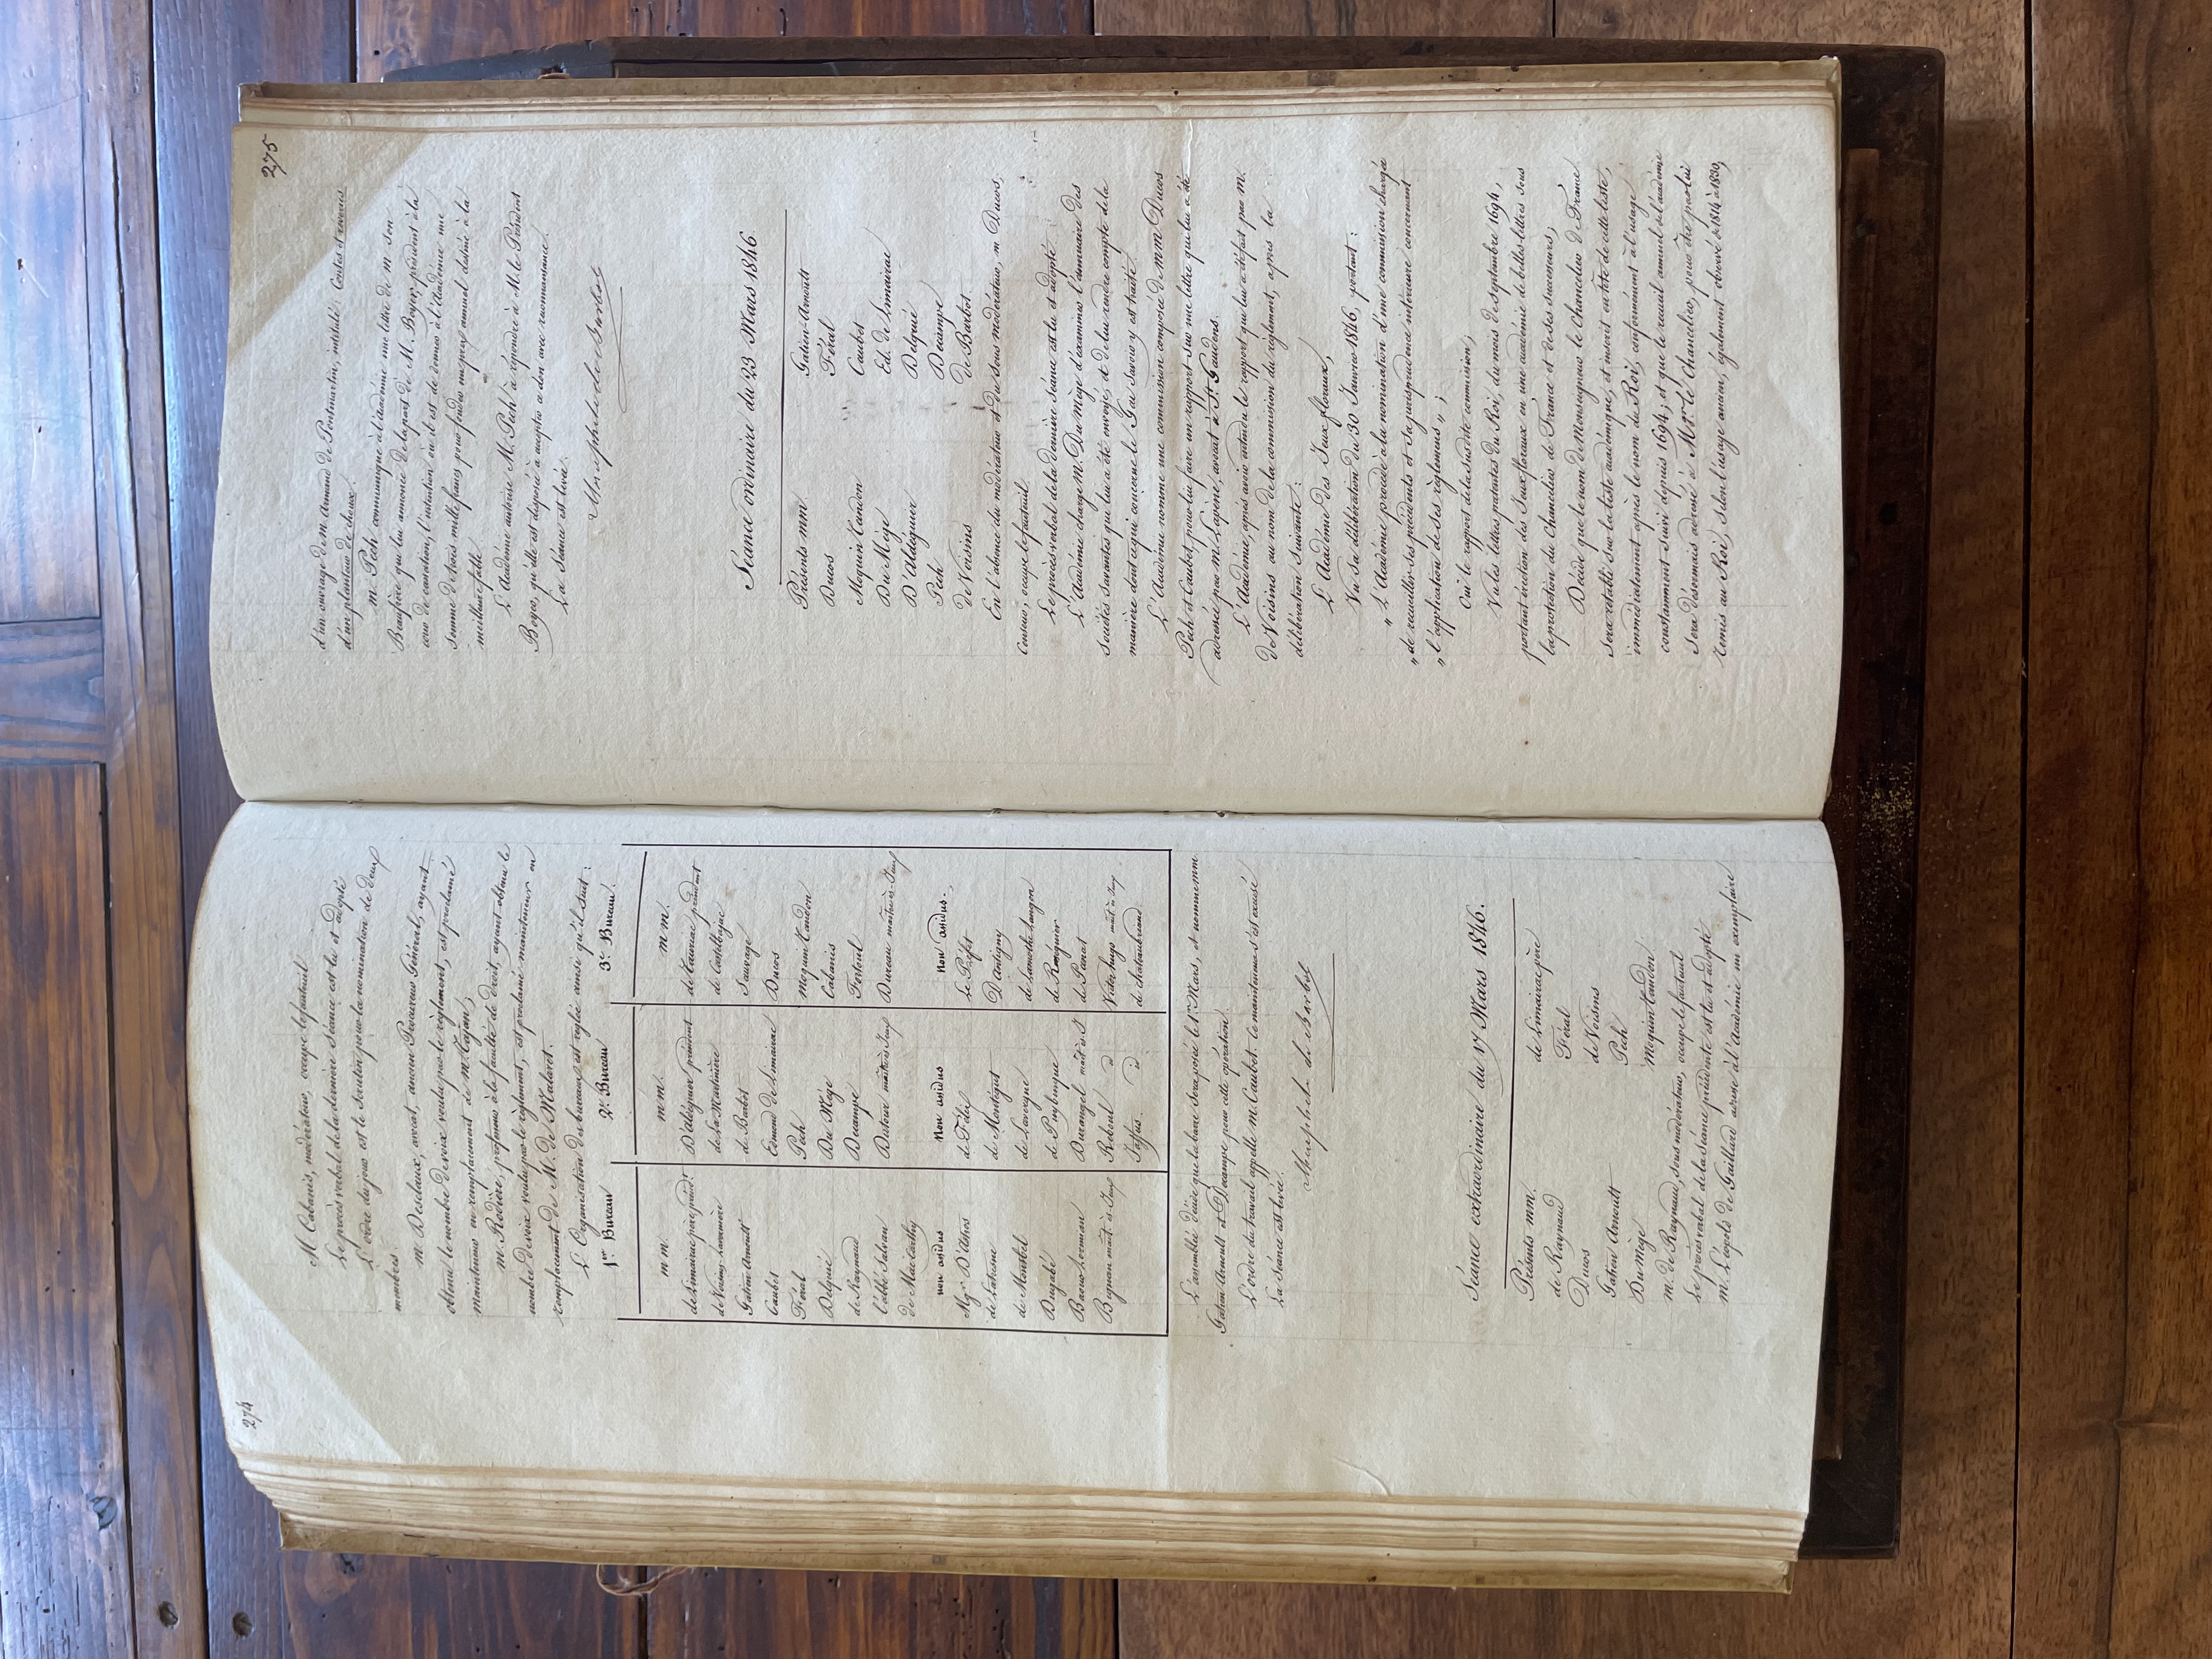 274
M Cabanis, modérateur, occupe le fauteuil.
Le procès verbal de la dernière séance est lu et adopté
L'ordre du jour est le scrutin pour la nomination de deux
membres.
M. Desclaux, avocat, ancien Procureur Général, ayant
obtenu le nombre de voix voulu par le règlement, est proclamé
mainteneur en remplacement de M. Tajan,
M. Rodière, professeur à la faculté de droit, ayant obtenu le
nombre de voix voulu par le règlement, est proclamé mainteneur en
remplacement de M. De Malaret.
L'Organisation des bureaux est réglée ainsi qu'il suit :
1er Bureau 2e Bureau 3e Bureau.
m m. m m. m m.
de Limairac père présidt. D'aldéguier président de Tauriac président
de Voisins-Lavernière de La Martinière de Castelbajac
Gatien Arnoult de Barbot Sauvage
Caubet Edmond de Limairac Ducos
Féral Pech Moquin tandon
Delquié Du Mège Cabanis
de Raynaud Decampe Fortoul
l'abbé Salvan Dutour maître ès Jeux Dureau maître-ès-Jeux
De Mac Carthy
non assidus Non assidus Non assidus.
Mgr. D'Astros de Féletz Le Préfet
de Latresne de Montégut D'Antigny
de Montbel de Lavergne de Lamothe langon
Dugabé de Puybusque de Rességuier
Baour Lormian Durangel mait ès J de Panat
Bignan mait. ès Jeux Reboul id Victor hugo mait ès Jeux
Jaffus id de chateaubriand
L'assemblée décide que la barre sera posée le 1er Mars, et nomme mm
Gatien Arnoult et Decampe pour cette opération.
L'ordre du travail appelle M. Caubet. Ce mainteneur s'est excusé
La Séance est levée.
de Barbot
Séance extraordinaire du 17 Mars 1846.
Présents mm. de Limairac père
de Raynaud Féral
Ducos de Voisins
Gatien Arnoult Pech
Du Mège Moquin tandon.
M. de Raynaud, sous modérateur, occupe le fauteuil
Le procès verbal de la séance précédente est lu et adopté
M. Léopold de Gaillard adresse à l'académie un exemplaire
275
d'un ouvrage de M. Armand de Pontmartin, intitulé: Contes et rêveries
d'un planteur de choux.
M. Pech communique à l'académie une lettre de M. son
Beaufrère qui lui annonce de la part de M. Boyer, président à la
cour de cassation, l'intention où il est de donner à l'Académie une
somme de trois mille francs pour fonder un prix annuel destiné à la
meilleure fable
L'Académie autorise M. Pech à répondre à M. le Président
Boyer, qu'elle est disposée à accepter ce don avec reconnaissance.
La Séance est levée.
de Barbot
Séance ordinaire du 23 Mars 1846.
Présents mm Gatien-Arnoult
Ducos Féral
Moquin tandon Caubet
Du Mège Ed. de Limairac
D'Aldéguier Delquié
Pech Decampe
de Voisins de Barbot.
En l'absence du modérateur et du sous modérateur, M Ducos,
Censeur, occupe le fauteuil.
Le procès verbal de la dernière séance est lu et adopté.
L'Académie charge M. Du Mège d'examiner l'annuaire des
sociétés savantes qui lui a été envoyé, et de lui rendre compte de la
manière dont ce qui concerne le Gai Savoir y est traité.
L'Académie nomme une commission composée de mm Ducos
Pech et Caubet, pour lui faire un rapport sur une lettre qui lui a été
adressée par M. Lapène, avocat à St. Gaudens.
L'Académie, après avoir entendu le rapport qui lui a été fait par M.
de Voisins au nom de la commission du règlement, a pris la
délibération suivante :
L'Académie des Jeux floraux,
Vu sa délibération du 30 Janvier 1846, portant :
„ L'Académie procède à la nomination d'une commission chargée
„ de recueillir ses précédents et sa jurisprudence intérieure concernant
„ l'application de ses règlemens „ ;
Oui le rapport de la susdite commission,
Vu les lettres patentes du Roi, du mois de septembre 1694,
portant érection des Jeux floraux en une académie de belles-lettres sous
la protection du Chancelier de France et de ses successeurs,
Décide que le nom de Monseigneur le Chancelier de France
sera rétabli sur la liste académique, et inscrit en tête de cette liste,
immédiatement après le nom du Roi, conformément à l'usage
constamment suivi depuis 1694; et que le recueil annuel de l'académie
sera désormais adressé à Mgr. le Chancelier, pour être par lui
remis au Roi, selon l'usage ancien, également observé de 1814 à 1830,